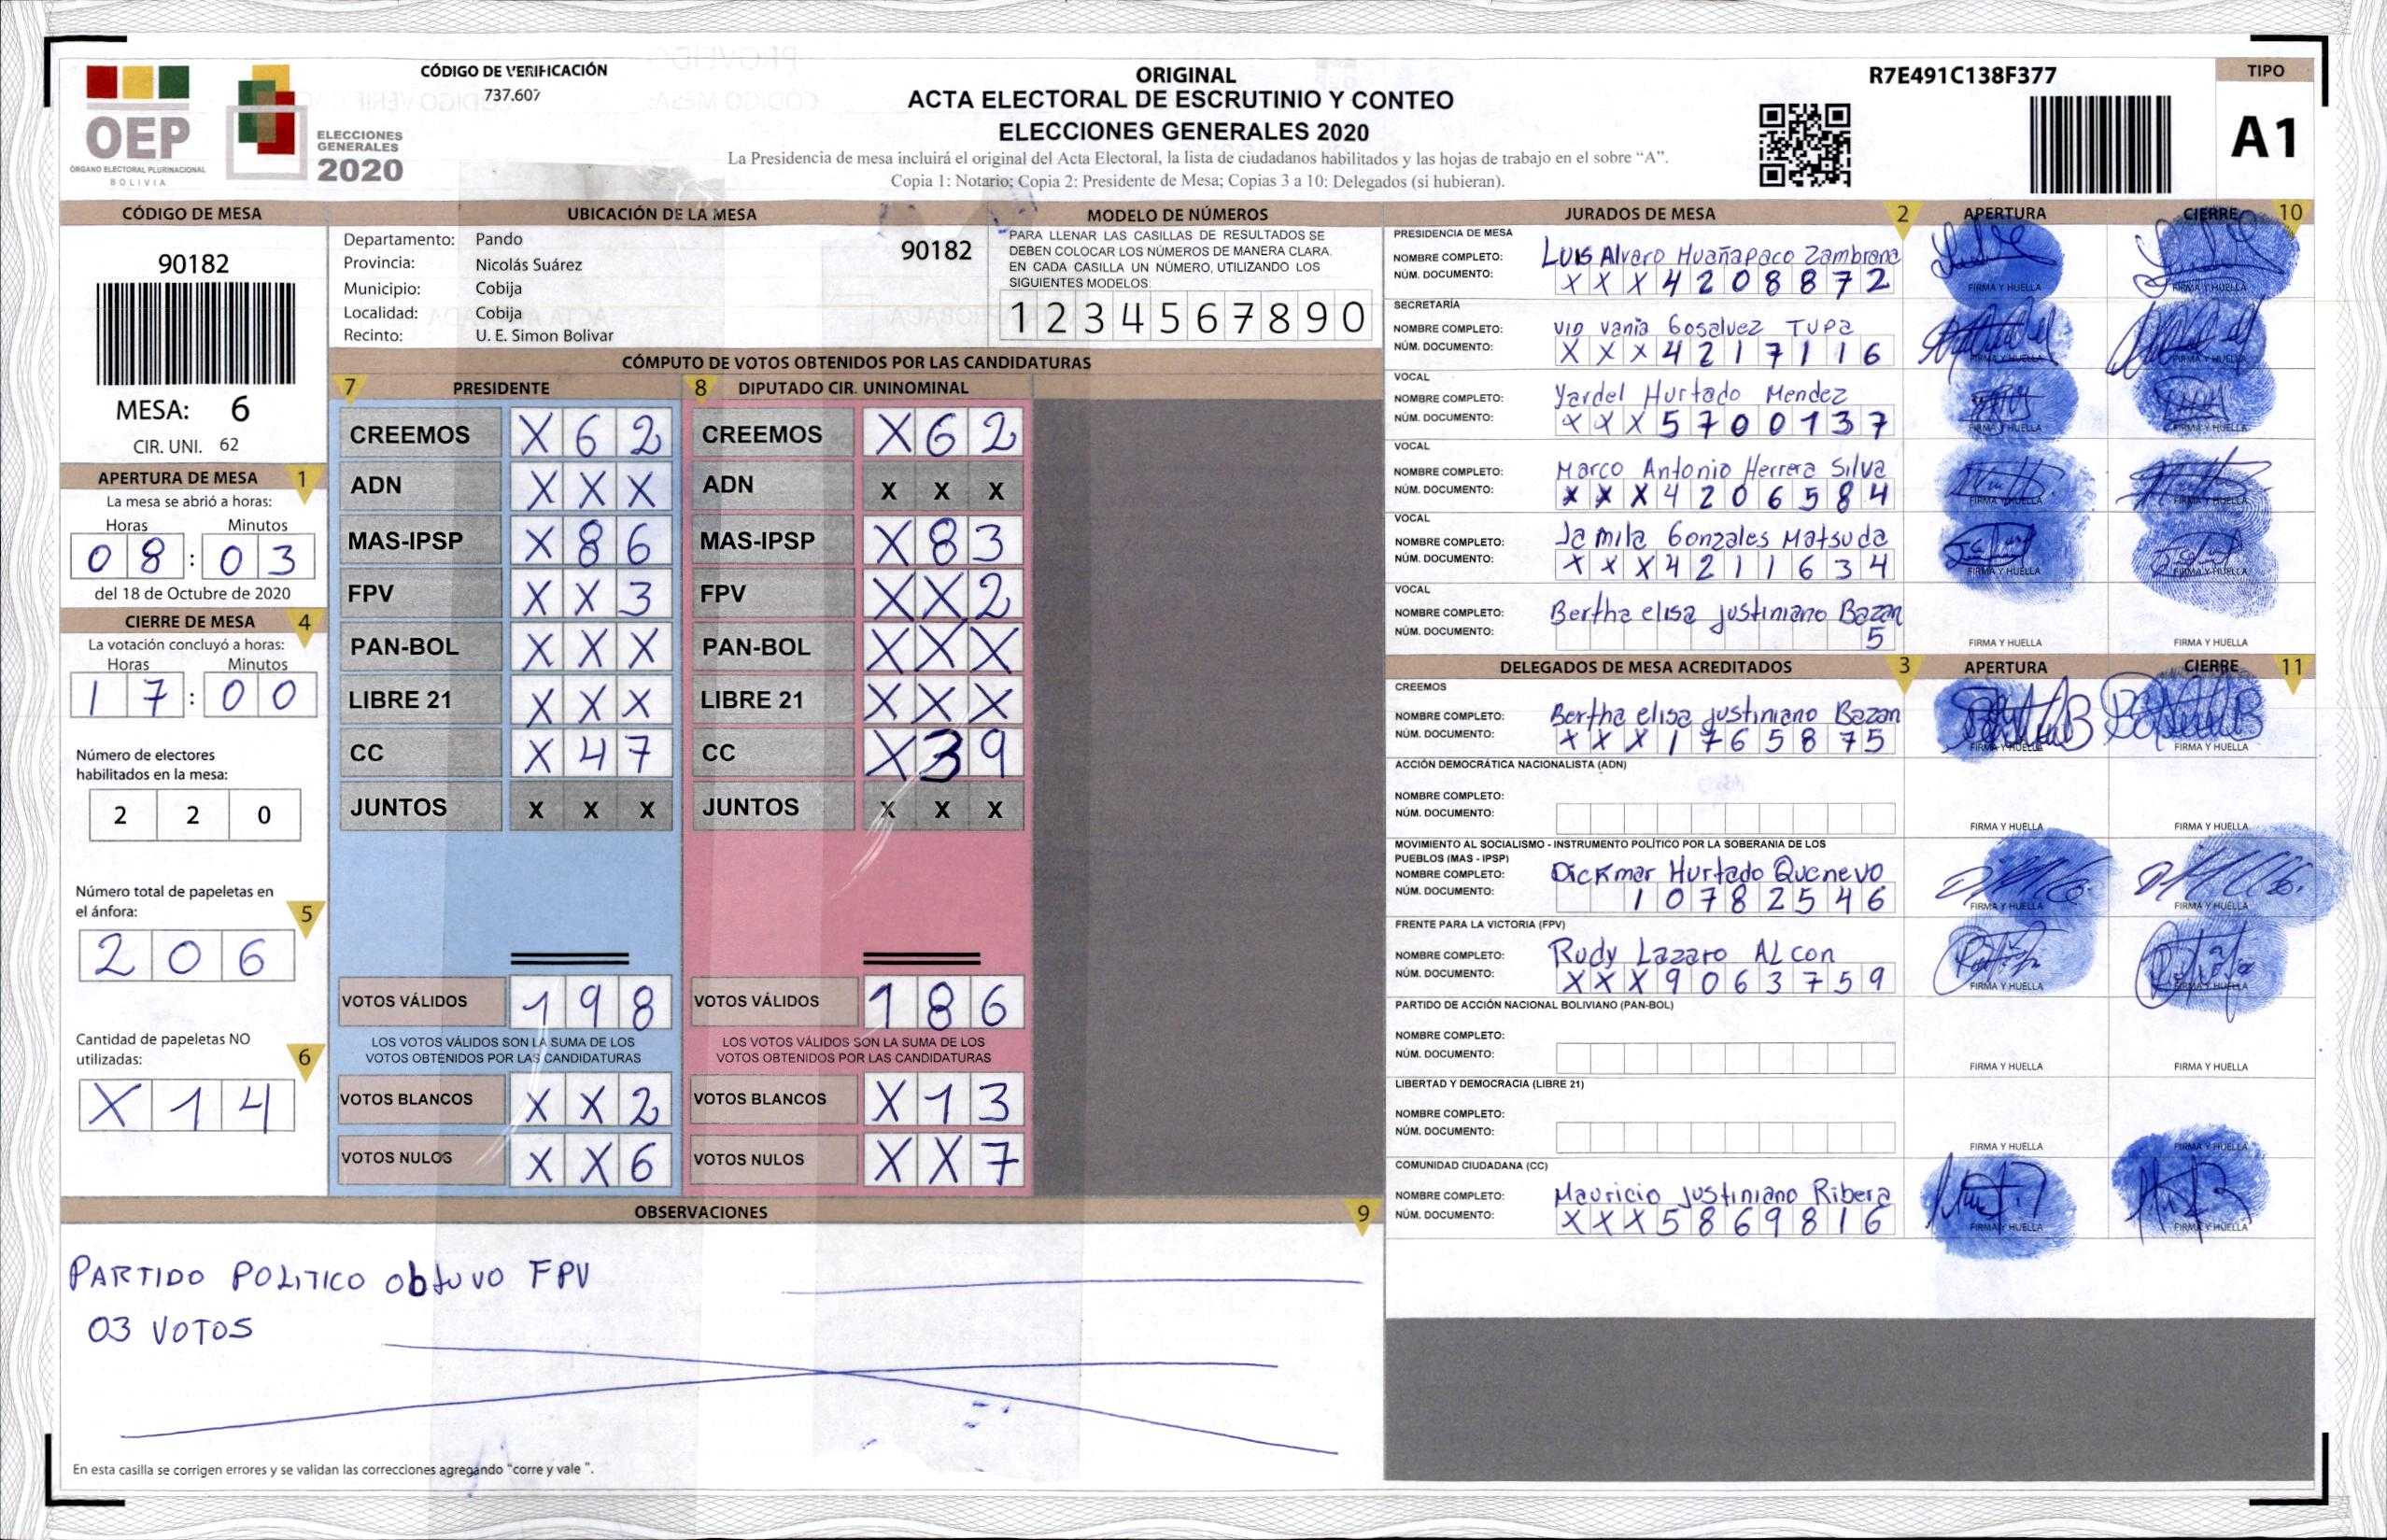 OEP
ÓRGANO ELECTORAL PLURINACIONAL
BOLIVIA
ELECCIONES
GENERALES
2020
CÓDIGO DE VERIFICACIÓN
737.607
ORIGINAL
ACTA ELECTORAL DE ESCRUTINIO Y CONTEO
ELECCIONES GENERALES 2020
La Presidencia de mesa incluirá el original del Acta Electoral, la lista de ciudadanos habilitados y las hojas de trabajo en el sobre “A”.
Copia 1: Notario; Copia 2: Presidente de Mesa; Copias 3 a 10: Delegados (si hubieran).
R7E491C138F377
TIPO
A1
CÓDIGO DE MESA
90182
MESA: 6
CIR. UNI. 62
APERTURA DE MESA 1
La mesa se abrió a horas:
Horas Minutos
08:03
del 18 de Octubre de 2020
CIERRE DE MESA 4
La votación concluyó a horas:
Horas Minutos
17:00
Número de electores
habilitados en la mesa:
220
Número total de papeletas en
el ánfora: 5
206
Cantidad de papeletas NO
utilizadas: 6
X14
UBICACIÓN DE LA MESA
Departamento: Pando
Provincia: Nicolás Suárez
Municipio: Cobija
Localidad: Cobija
Recinto: U. E. Simon Bolivar
90182
MODELO DE NÚMEROS
PARA LLENAR LAS CASILLAS DE RESULTADOS SE
DEBEN COLOCAR LOS NÚMEROS DE MANERA CLARA.
EN CADA CASILLA UN NÚMERO, UTILIZANDO LOS
SIGUIENTES MODELOS:
1234567890
CÓMPUTO DE VOTOS OBTENIDOS POR LAS CANDIDATURAS
7 PRESIDENTE 8 DIPUTADO CIR. UNINOMINAL
CREEMOS X62 CREEMOS X62
ADN XXX ADN X X X
MAS-IPSP X86 MAS-IPSP X83
FPV XX3 FPV XX2
PAN-BOL XXX PAN-BOL XXX
LIBRE 21 XXX LIBRE 21 XXX
CC X47 CC X39
JUNTOS X X X JUNTOS X X X
VOTOS VÁLIDOS 198 VOTOS VÁLIDOS 186
LOS VOTOS VÁLIDOS SON LA SUMA DE LOS LOS VOTOS VÁLIDOS SON LA SUMA DE LOS
VOTOS OBTENIDOS POR LAS CANDIDATURAS VOTOS OBTENIDOS POR LAS CANDIDATURAS
VOTOS BLANCOS XX2 VOTOS BLANCOS X13
VOTOS NULOS XX6 VOTOS NULOS XX7
OBSERVACIONES 9
PARTIDO POLITICO obtuvo FPV
03 VOTOS
En esta casilla se corrigen errores y se validan las correcciones agregando “corre y vale ”.
JURADOS DE MESA 2 APERTURA CIERRE 10
PRESIDENCIA DE MESA
NOMBRE COMPLETO: LUIS Alvaro Huañapaco Zambrana
NÚM. DOCUMENTO: XXX4208872 FIRMA Y HUELLA FIRMA Y HUELLA
SECRETARÍA
NOMBRE COMPLETO: Vania Gosalvez TUPA
NÚM. DOCUMENTO: XXX4217116 FIRMA Y HUELLA FIRMA Y HUELLA
VOCAL
NOMBRE COMPLETO: Yardel Hurtado Mendez
NÚM. DOCUMENTO: XXX5700137 FIRMA Y HUELLA FIRMA Y HUELLA
VOCAL
NOMBRE COMPLETO: Marco Antonio Herrera Silva
NÚM. DOCUMENTO: XXX4206584 FIRMA Y HUELLA FIRMA Y HUELLA
VOCAL
NOMBRE COMPLETO: Jamila Gonzales Matsuda
NÚM. DOCUMENTO: XXX4211634 FIRMA Y HUELLA FIRMA Y HUELLA
VOCAL
NOMBRE COMPLETO: Bertha elisa justiniano Bazan
NÚM. DOCUMENTO: 5 FIRMA Y HUELLA FIRMA Y HUELLA
DELEGADOS DE MESA ACREDITADOS 3 APERTURA CIERRE 11
CREEMOS
NOMBRE COMPLETO: Bertha elisa justiniano Bazan
NÚM. DOCUMENTO: XXX1765875 FIRMA Y HUELLA FIRMA Y HUELLA
ACCIÓN DEMOCRÁTICA NACIONALISTA (ADN)
NOMBRE COMPLETO:
NÚM. DOCUMENTO: FIRMA Y HUELLA FIRMA Y HUELLA
MOVIMIENTO AL SOCIALISMO - INSTRUMENTO POLÍTICO POR LA SOBERANIA DE LOS
PUEBLOS (MAS - IPSP)
NOMBRE COMPLETO: Dickmar Hurtado Quenevo
NÚM. DOCUMENTO: 10782546 FIRMA Y HUELLA FIRMA Y HUELLA
FRENTE PARA LA VICTORIA (FPV)
NOMBRE COMPLETO: Rudy Lazaro ALcon
NÚM. DOCUMENTO: XXX9063759 FIRMA Y HUELLA FIRMA Y HUELLA
PARTIDO DE ACCIÓN NACIONAL BOLIVIANO (PAN-BOL)
NOMBRE COMPLETO:
NÚM. DOCUMENTO: FIRMA Y HUELLA FIRMA Y HUELLA
LIBERTAD Y DEMOCRACIA (LIBRE 21)
NOMBRE COMPLETO:
NÚM. DOCUMENTO: FIRMA Y HUELLA FIRMA Y HUELLA
COMUNIDAD CIUDADANA (CC)
NOMBRE COMPLETO: Mauricio justiniano Ribera
NÚM. DOCUMENTO: XXX5869816 FIRMA Y HUELLA FIRMA Y HUELLA